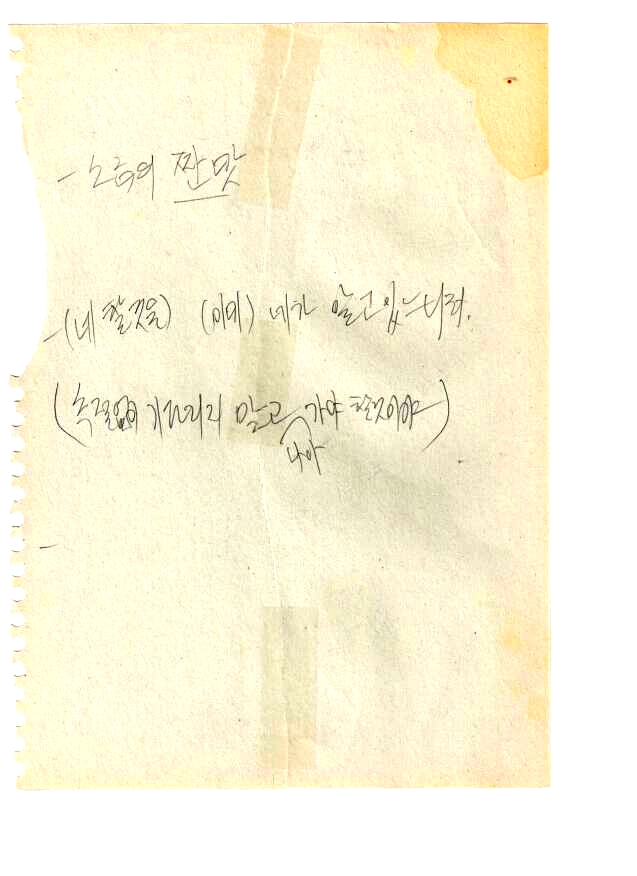 - 노동의 짠맛
- (네 할 것을) (이미) 네가 알고 있느니라.
( 속절없이 기다리지 말고 나아가야 할 것이야 )
-